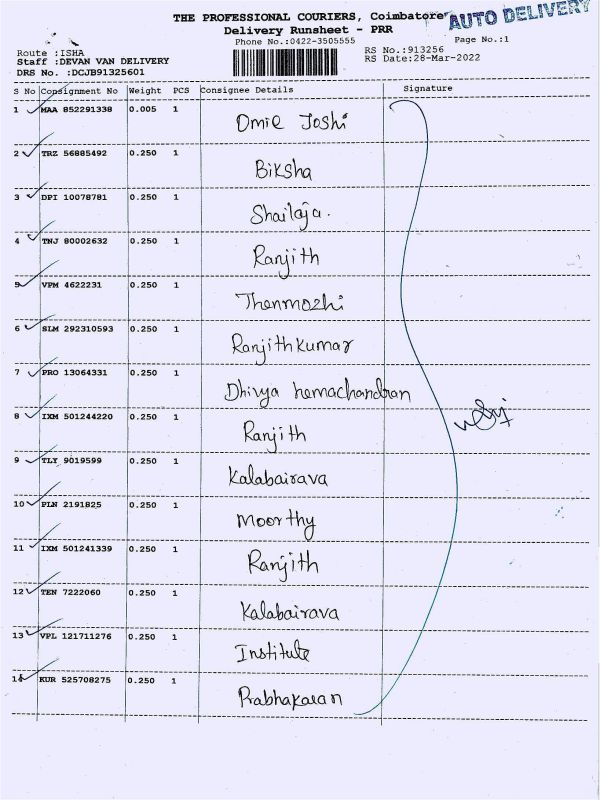 THE PROFESSIONAL COURIERS, Coimbatore
AUTO DELIVERY
Delivery Runsheet - PRR
Phone No.:0422-3505555 Page No.:1
Route :ISHA RS No.:913256
Staff :DEVAN VAN DELIVERY RS Date:28-Mar-2022
DRS No. :DCJB91325601
S No Consignment No Weight PCS Consignee Details Signature
1 MAA 852291338 0.005 1 Omie Joshi
2 TRZ 56885492 0.250 1 Biksha
3 DPI 10078781 0.250 1 Shailaja.
4 TNJ 80002632 0.250 1 Ranjith
5 VPM 4622231 0.250 1 Thenmozhi
6 SLM 292310593 0.250 1 Ranjithkumar
7 PRO 13064331 0.250 1 Dhivya hemachandran
8 IXM 501244220 0.250 1 Ranjith
9 TLY 9019599 0.250 1 Kalabairava
10 PLN 2191825 0.250 1 Moorthy
11 IXM 501241339 0.250 1 Ranjith
12 TEN 7222060 0.250 1 Kalabairava
13 VPL 121711276 0.250 1 Institute
14 KUR 525708275 0.250 1 Prabhakaran